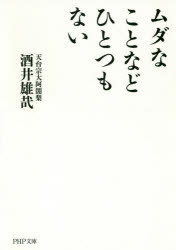 ムダな
ことなど
ひとつも
ない
天台宗大阿闍梨
酒井雄哉
PHP文庫